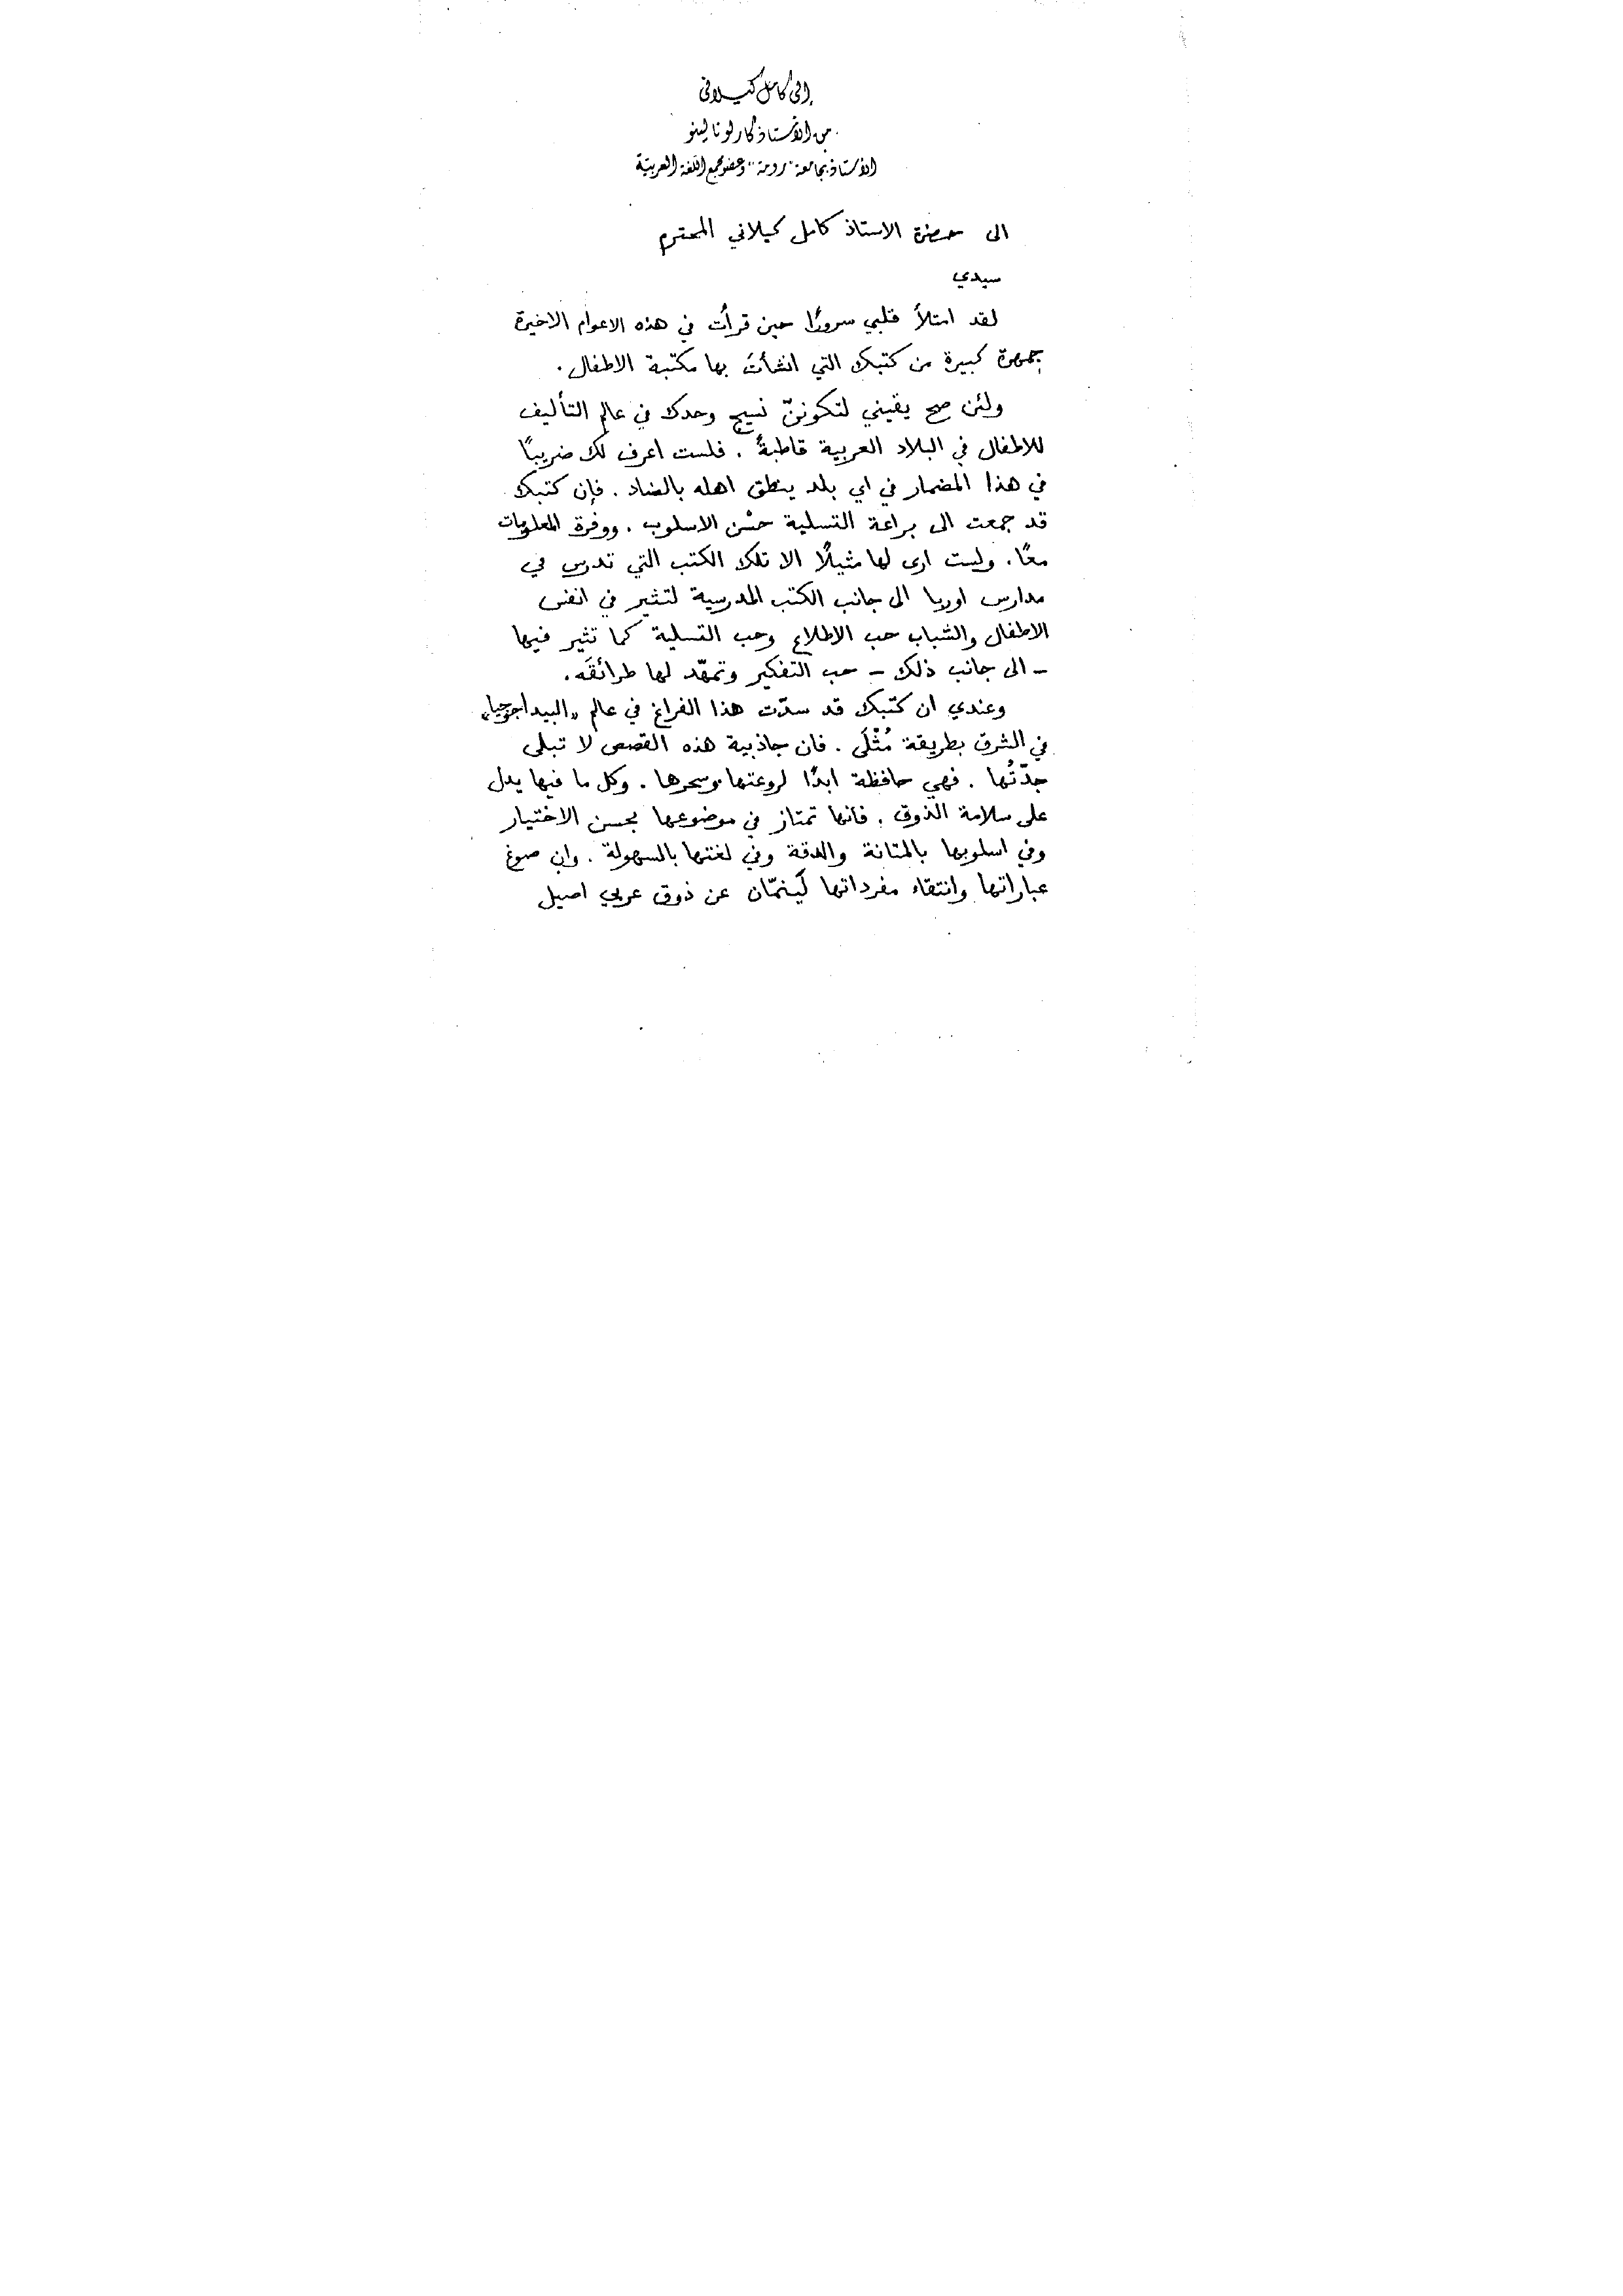 إلى كامل كيلانى
من الأستاذ كارلو نالينو
الأستاذ بجامعة "رومة" وعضو مجمع اللغة العربيّة
الى حضرة الاستاذ كامل كيلاني المحترم
سيدي
لقد امتلأ قلبي سرورًا حين قرأت في هذه الاعوام الاخيرة
جمهرة كبيرة من كتبك التي انشأتَ بها مكتبة الاطفال .
ولئن صح يقيني لتكوننّ نسيج وحدك في عالم التأليف
للاطفال في البلاد العربية قاطبةً . فلست اعرف لك ضريبًا
في هذا المضمار في اي بلد ينطق اهله بالضاد . فإن كتبك
قد جمعت الى براعة التسلية حسْن الاسلوب . ووفرة المعلومات
معًا . ولست ارى لها مثيلًا الا تلك الكتب التي تدرس في
مدارس اوربا الى جانب الكتب المدرسية لتثير في انفس
الاطفال والشباب حب الاطلاع وحب التسلية كما تثير فيها
– الى جانب ذلك – حب التفكير وتمهّد لها طرائقَه .
وعندي ان كتبك قد سدّت هذا الفراغ في عالم «البيداجوجيا»
في الشرق بطريقة مُثْلَى . فان جاذبية هذه القصص لا تبلى
جدّتُها . فهي حافظة ابدًا لروعتها وسحرها . وكل ما فيها يدل
على سلامة الذوق . فانها تمتاز في موضوعها بحسن الاختيار
وفي اسلوبها بالمتانة والدقة وفي لغتها بالسهولة . وان صوغ
عباراتها وانتقاء مفرداتها لَينمّان عن ذوق عربي اصيل